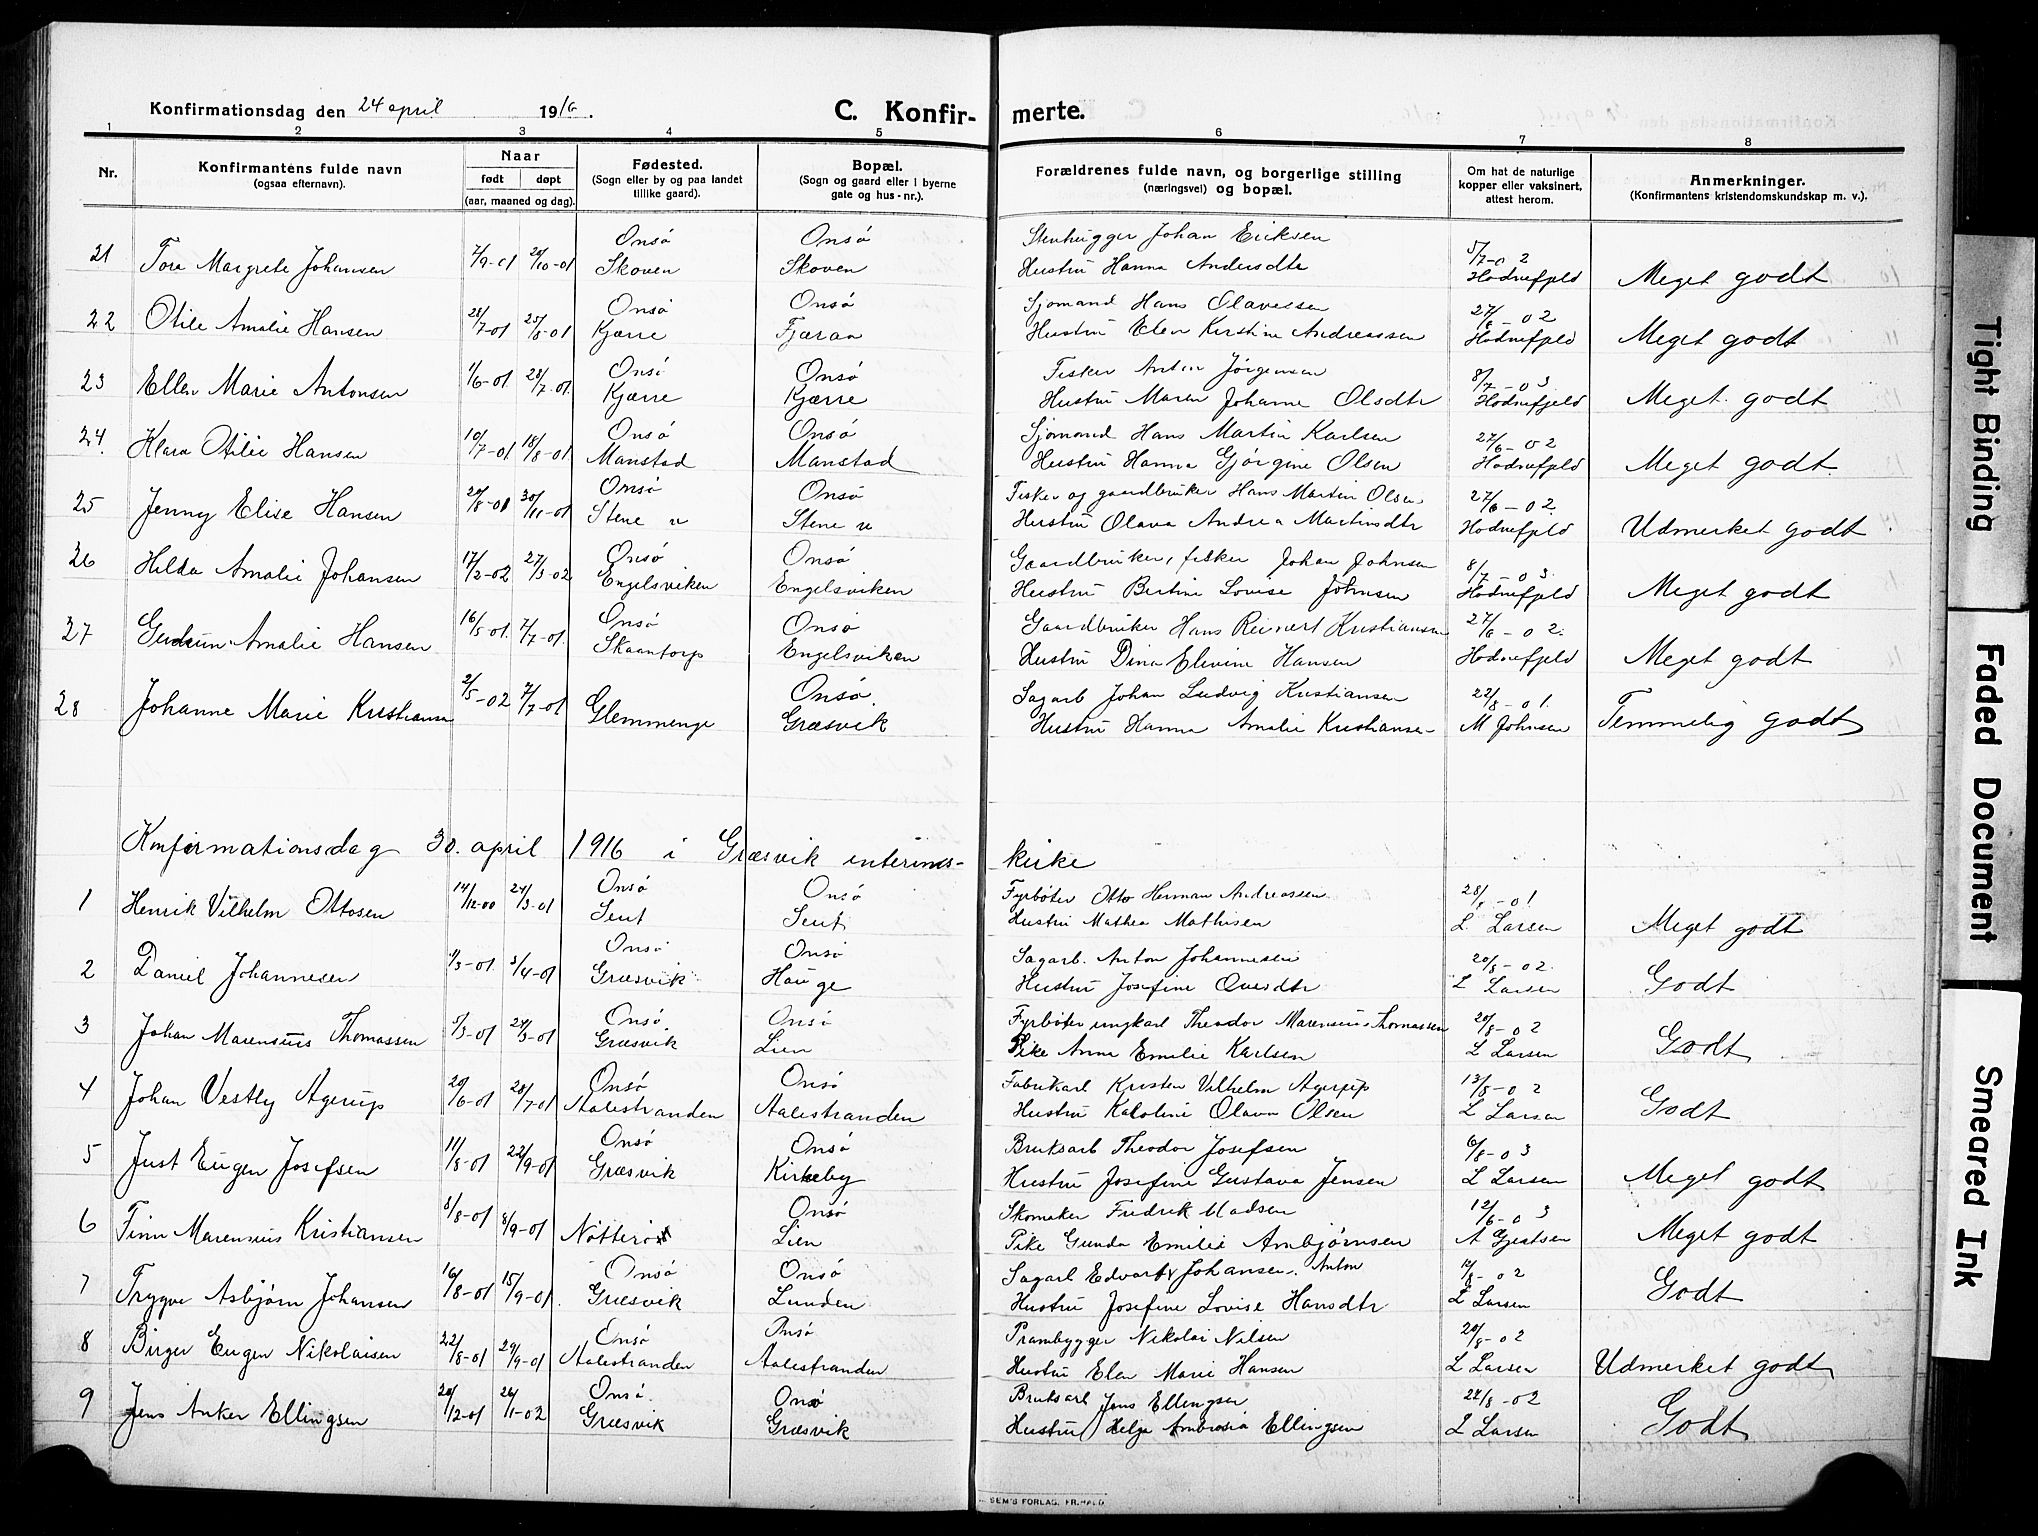 Konfirmationsdag den 24 april 1916. C. Konfirmerte.
1 2 3 4 5 6 7 8
Nr. Konfirmantens fulde navn (ogsaa efternavn). Naar født døpt (aar, maaned og dag). Fødested. (Sogn eller by og paa landet tillike gaard). Bopæl. (Sogn og gaard eller i byerne gate og hus-nr.). Forældrenes fulde navn, og borgerlige stilling (næringsvei) og bopæl. Om hat de naturlige kopper eller vaksinert, attest herom. Anmerkninger. (Konfirmantens kristendomskundskap m. v.).
Onsö Onsö Stenhugger Johan Eriksen 5/7-02
21 Tora Margrete Johansen 7/9-01 20/10-01 Skoven Skoven Hustru Hanna Andersdtr Hodnefjeld Meget godt
Onsö Onsö Sjömand Hans Olavessen 27/6-02
22 Otile Amalie Hansen 28/7-01 25/8-01 Kjærre Fjæraa Hustru Elen Kirstine Andreassen Hodnefjeld Meget godt
Onsö Onsö Fisker Anton Jörgensen 8/7-03
23 Ellen Marie Antonsen 1/6-01 28/7-01 Kjærre Kjærre Hustru Maren Johanne Olsdtr Hodnefjeld Meget godt
Onsö Onsö Sjömand Hans Martin Karlsen 27/6-02
24. Klara Otilie Hansen 10/7-01 18/8-01 Manstad Manstad Hustru Hanna Gjørgine Olsen Hodnefjeld Meget godt
Onsö Onsö Fisker og gaardbruker Hans Martin Olsen 27/6-02
25 Jenny Elise Hansen 20/8-01 30/11-01 Stene n Stene n Hustru Olava Andrea Martinsdtr Hodnefjeld Udmerket godt
Onsö Onsö Gaardbruker, fisker Johan Johnsen 8/7-03
26 Hilda Amalie Johansen 17/2-02 27/3-02 Engelsviken Engelsviken Hustru Bertine Lovise Johnsen Hodnefjeld Meget godt
Onsö Onsö Gaardbruker Hans Reinert Kristiansen 27/6-02
27 Gudrun Amalie Hansen 16/5-01 7/7-01 Skaantorp Engelsviken Hustru Dina Elivine Hansen Hodnefjeld Meget godt
Onsö Sagarb Johan Ludvig Kristiansen 22/8-01
28 Johanne Marie Kristiansen 2/5-02 7/7-01 Glemmenge Græsvik Hustru Hanna Amalie Kristiansen M Johnsen Temmelig godt
Konfirmationsdag 30. april 1916 i Græsvik interimskirke
Onsö Onsö Fyrböter Otto Herman Andreassen 28/8-01
1 Henrik Vilhelm Ottosen 14/12-00 24/3-01 Sent Sent Hustru Mathea Mathisen L. Larsen Meget godt
Onsö Onsö Sagarb. Anton Johannesen 20/8-02
2 Daniel Johannesen 1/3-01 3/4-01 Græsvik Hauge Hustru Josefine Ovesdtr L Larsen Godt
Onsö Onsö Fyrböter ungkarl Theodor Marensius Thomassen 20/8-02
3 Johan Marensius Thomassen 5/3-01 24/3-01 Græsvik Lien Pike Anna Emilie Karlsen L Larsen Godt
Onsö Onsö Fabrikarb Kristen Vilhelm Agerup 13/8-02
4 Johan Vestly Agerup 20/6-01 28/7-01 Aalestranden Aalestranden Hustru Karoline Olava Olsen L Larsen Godt
Onsö Onsö Bruksarb Theodor Josefsen 6/8-03
5 Just Eugen Josefsen 11/8-01 22/9-01 Græsvik Kirkeby Hustru Josefine Gustava Jensen L Larsen Meget godt
Onsö Skomaker Fredrik Madsen 12/6-03
6 Finn Marensius Kristiansen 8/8-01 8/9-01 Nötterö Lien Pike Gunda Emilie Arnbjørnsen A Gjertsen Meget godt
Onsö Onsö Sagarb Edvart Johansen. Anton 13/8-02
7 Trygve Asbjørn Johansen 16/8-01 15/9-01 Græsvik Lunden Hustru Josefine Lovise Hansdtr L Larsen Godt
Onsö Onsö Prambygger Nikolai Nilsen 20/8-02
8 Birger Eugen Nikolaisen 22/8-01 29/9-01 Aalestranden Aalestranden Hustru Elen Marie Hansen L Larsen Udmerket godt
Onsö Onsö Bruksarb Jens Ellingsen 24/8-02
9 Jens Anker Ellingsen 20/12-01 26/1-02 Græsvik Græsvik Hustru Helga Ambrosia Ellingsen L Larsen Godt
SEM'S FORLAG, FR.HALD
Tight Binding
Faded Document
Smeared Ink